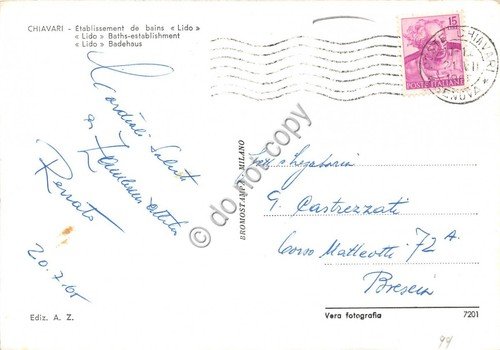 CHIAVARI - Établissement de bains « Lido »
« Lido » Baths-establishment
« Lido » Badehaus
Cordiali Saluti
Renato
20.7.65
Ediz. A. Z.
BROMOSTAMPA - MILANO
15
POSTE ITALIANE
CHIAVARI
GENOVA
G. Castrezzati
Corso Matteotti 72 A.
Brescia
Vera fotografia
7201
99
© do not copy